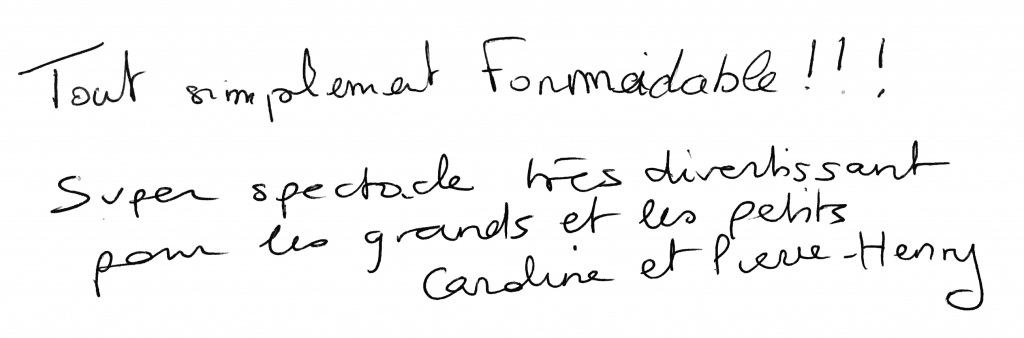 Tout simplement Formidable !!!
Super spectacle très divertissant
pour les grands et les petits
Caroline et Pierre-Henry